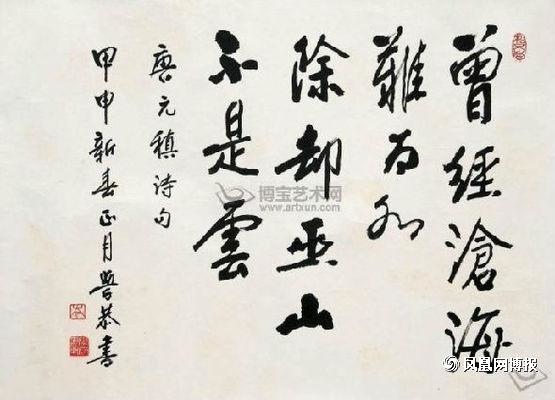 曾經滄海
難为水
除却巫山
不是雲
唐元稹诗句
甲申新春正月恭書
博宝艺术网
www.artxun.com
凤凰网博报